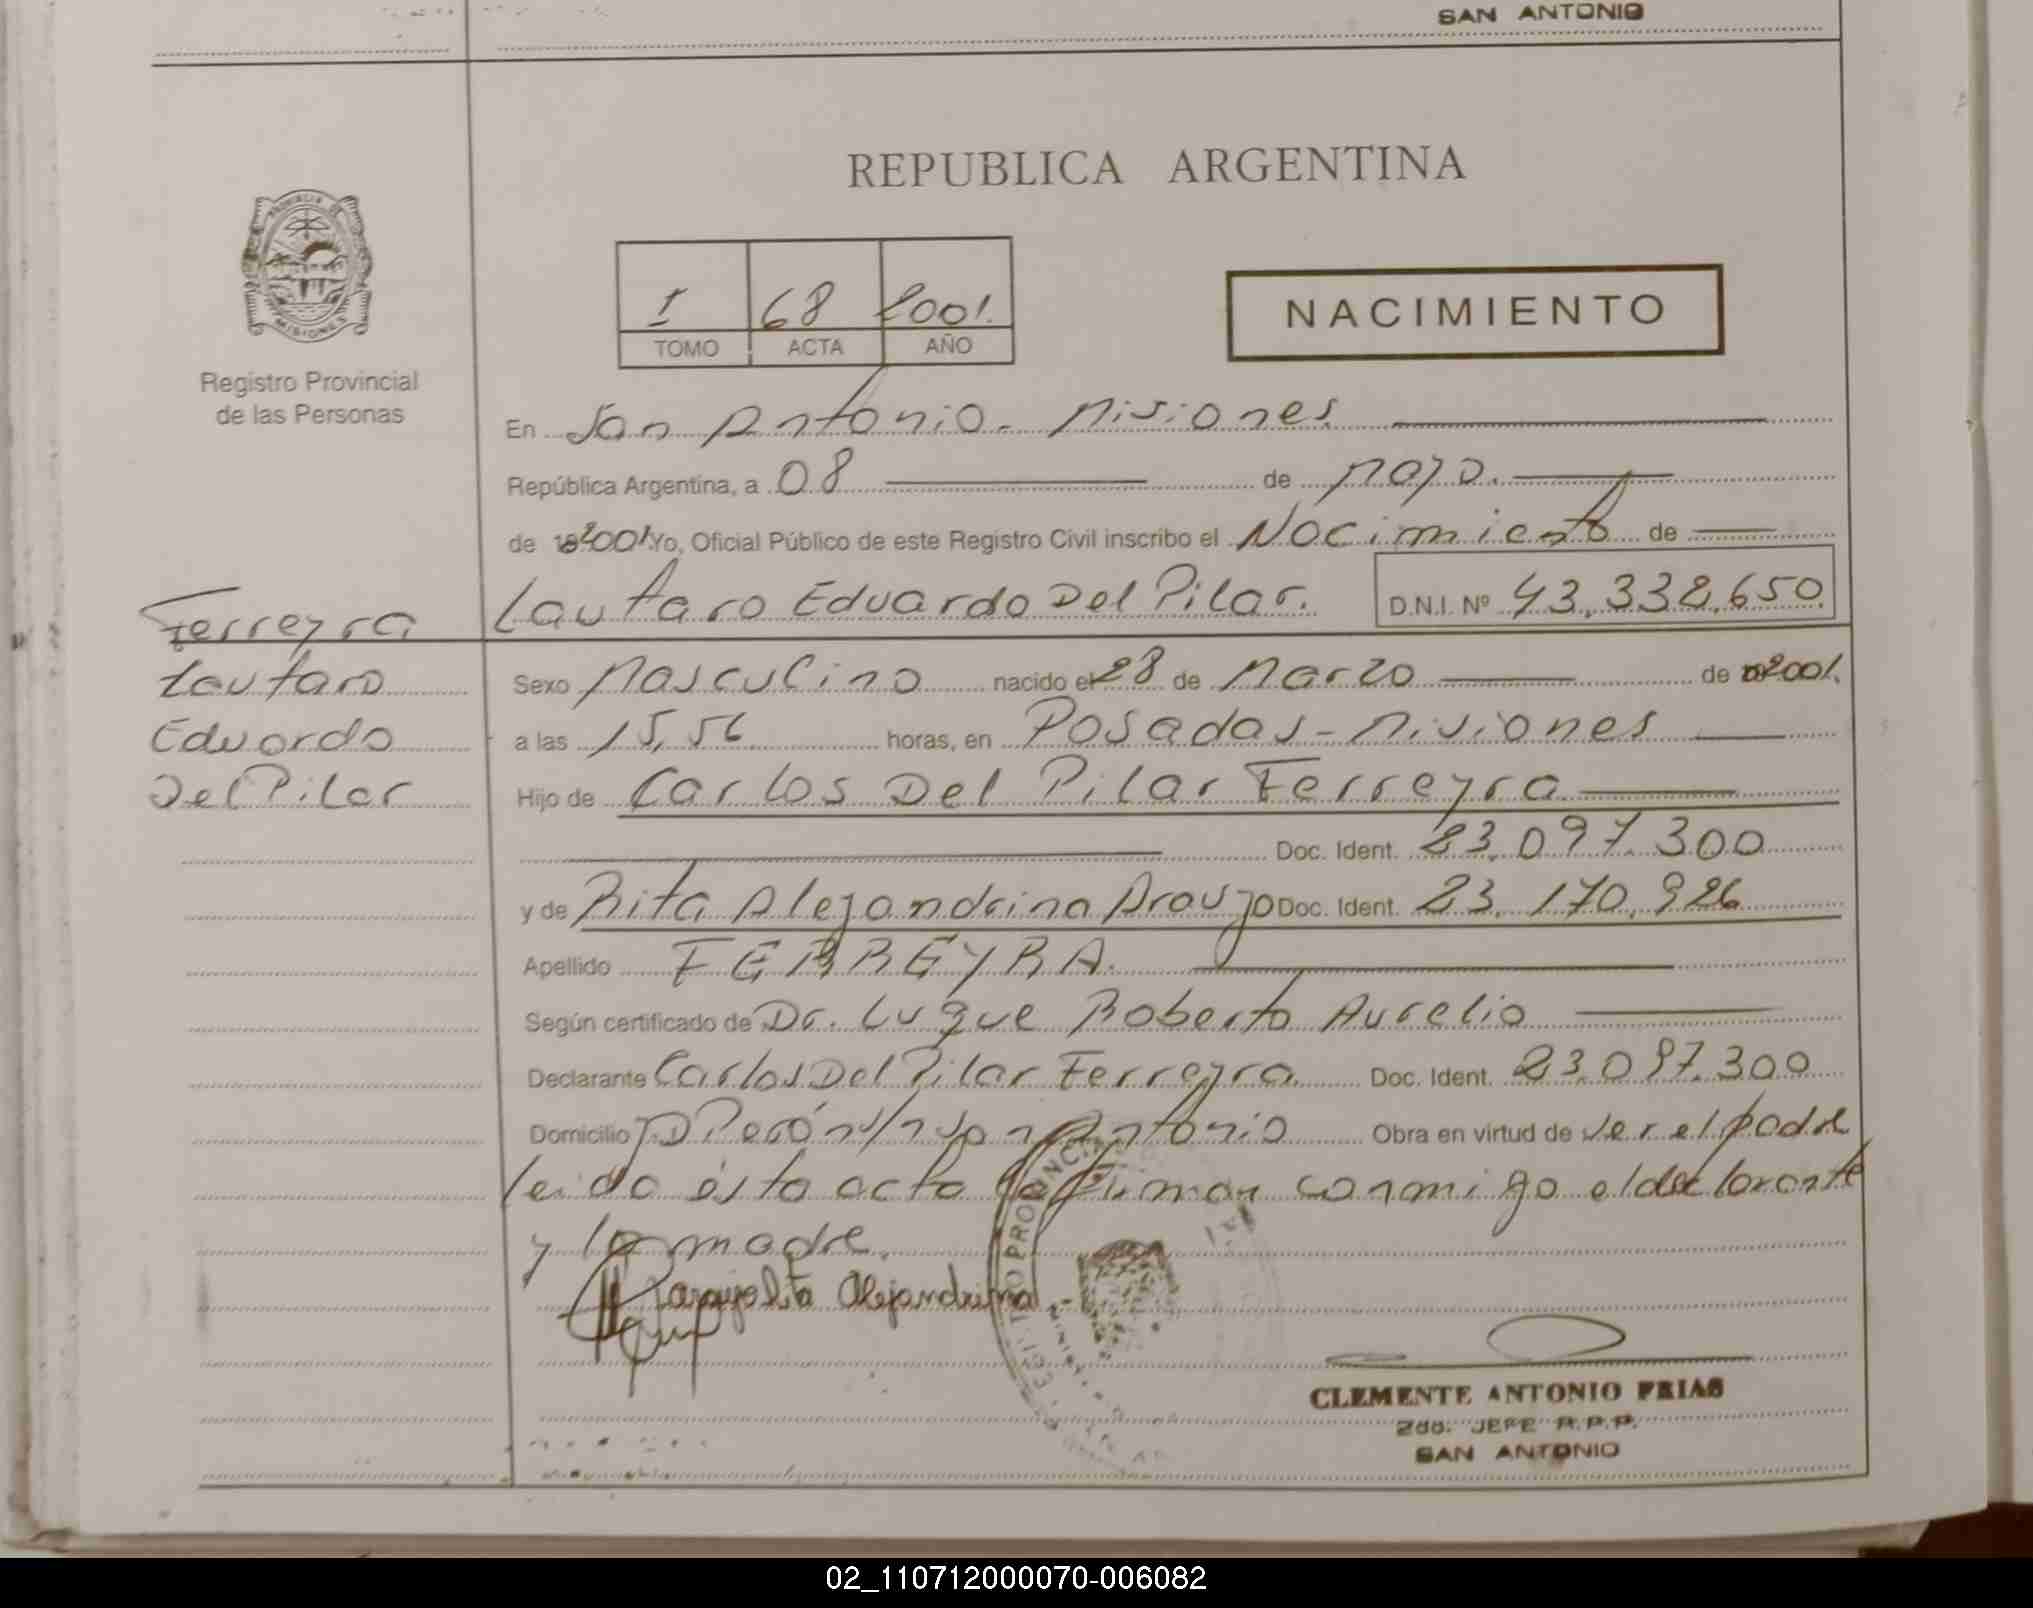 SAN ANTONIO
REPUBLICA ARGENTINA
PROVINCIA DE
MISIONES
Registro Provincial
de las Personas
I 68 2001.
TOMO ACTA AÑO
NACIMIENTO
En San Antonio - Misiones
República Argentina, a 08 de Mayo.
de 2001 Yo, Oficial Público de este Registro Civil inscribo el Nacimiento de
Lautaro Eduardo Del Pilar. D.N.I. Nº 43.338.650
Ferreyra
Lautaro
Eduardo
Del Pilar
Sexo Masculino nacido el 28 de Marzo de 2001.
a las 15,56 horas, en Posadas - Misiones
Hijo de Carlos Del Pilar Ferreyra
Doc. Ident. 23.097.300
y de Rita Alejandrina Araujo Doc. Ident. 23.170.926
Apellido FERREYRA.
Según certificado de Dr. Luque Roberto Aurelio
Declarante Carlos Del Pilar Ferreyra Doc. Ident. 23.097.300
Domicilio J.D Perón s/n San Antonio Obra en virtud de ser el padre
leida ésta acta la firman conmigo el declarante
y la madre.
Araujo Rita Alejandrina
CLEMENTE ANTONIO FRIAS
2do. JEFE R.P.P.
SAN ANTONIO
02_110712000070-006082